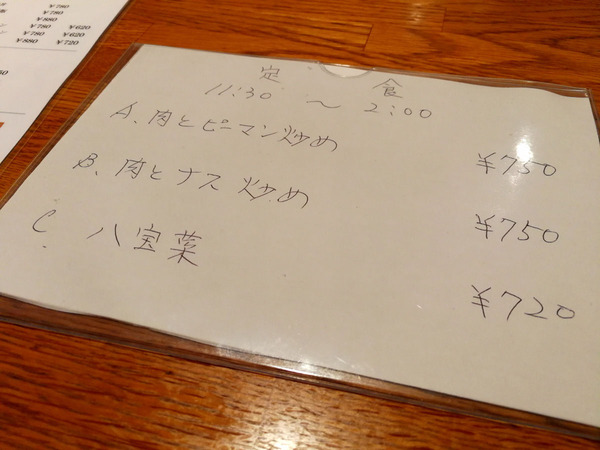 ¥780
¥880
¥780 ¥620
¥780 ¥620
¥880 ¥720
定 食
11:30 〜 2:00
A. 肉とピーマン炒め ¥750
B. 肉とナス炒め ¥750
C. 八宝菜 ¥720